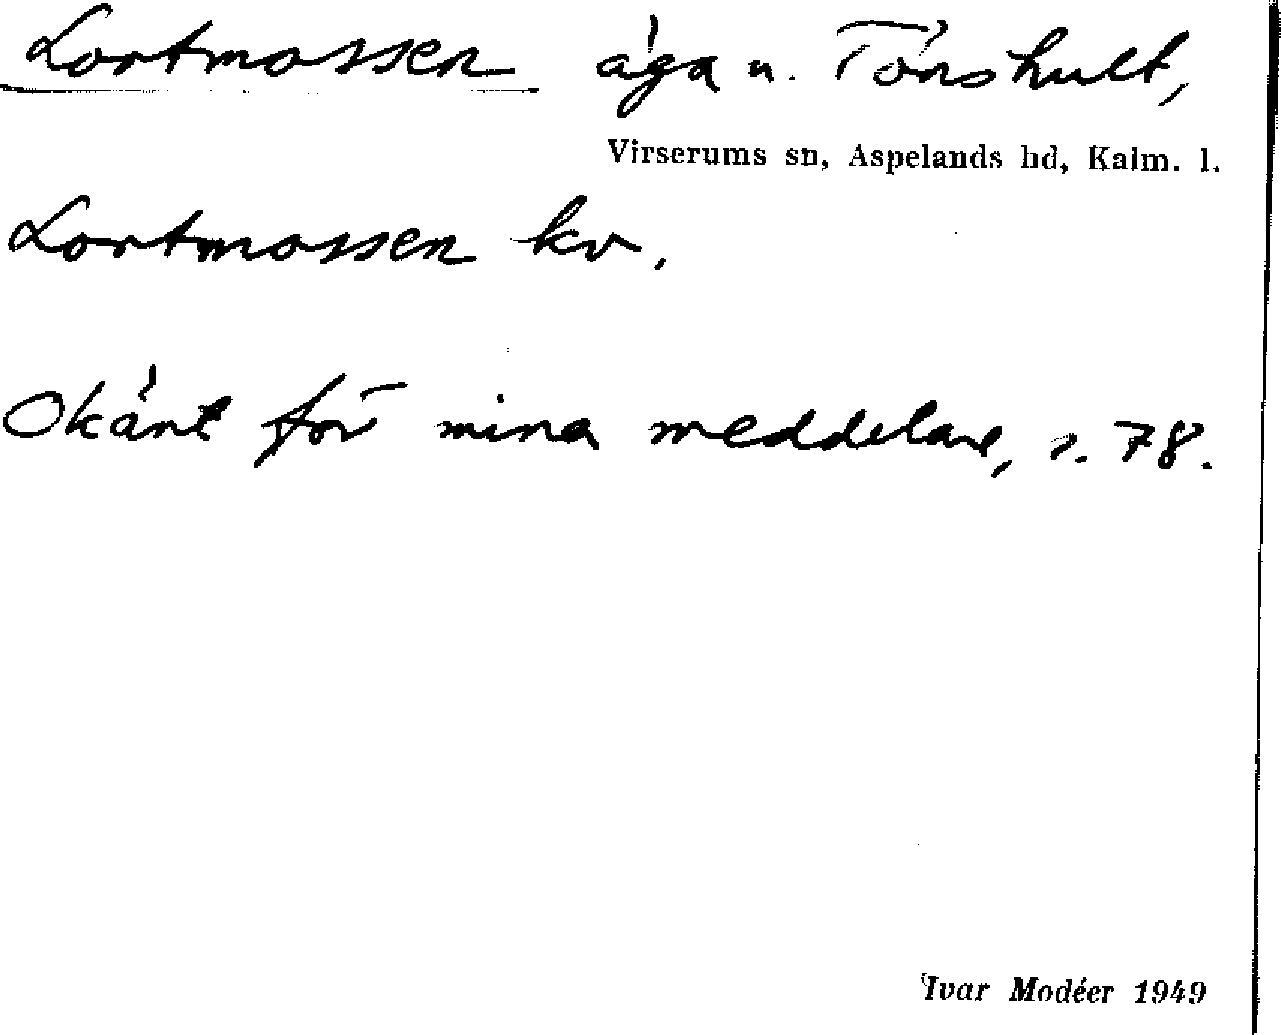 Lortmossen äga u. Tönshult,
Virserums sn, Aspelands hd, Kalm. l.
Lortmossen kv.
Okänt för mina meddelare, s. 78.
Ivar Modéer 1949